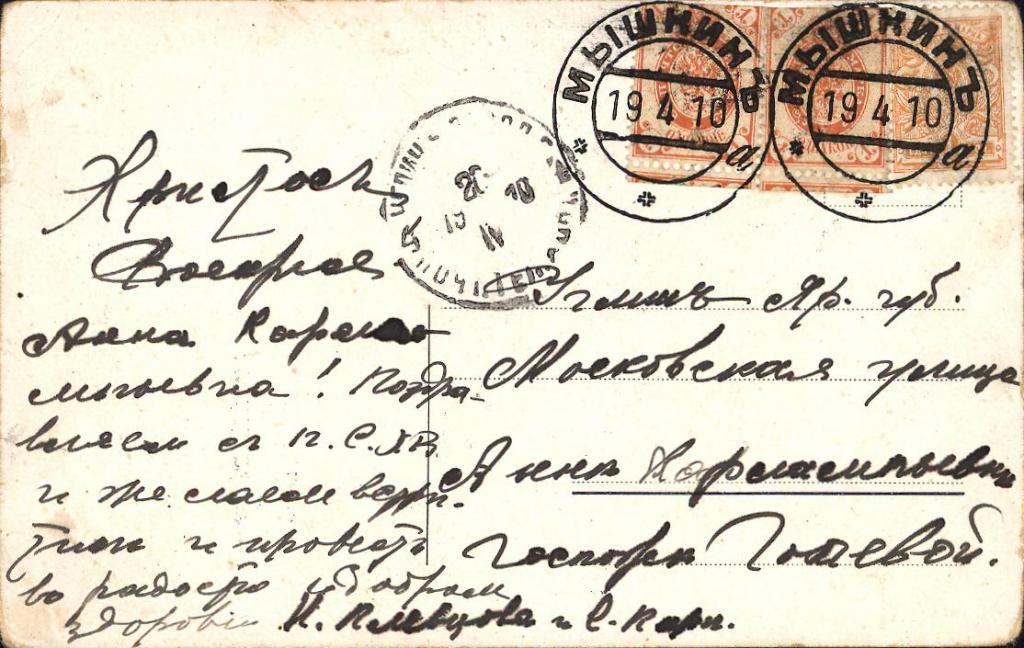 МЫШКИНЪ
19 4 10
а
МЫШКИНЪ
19 4 10
а
20 10
Христосъ
Воскресе
Анна Харла-
мпьевна! Поздра-
вляем съ п. С. ХВ
и желаем встре
тить и провесть
во радости и добром
здоровiи
Н. Клевцова и С. Карп.
Угличъ Яр. губ.
Московская улица
Аннѣ Харлампьевнѣ
Госпожѣ Готевой.